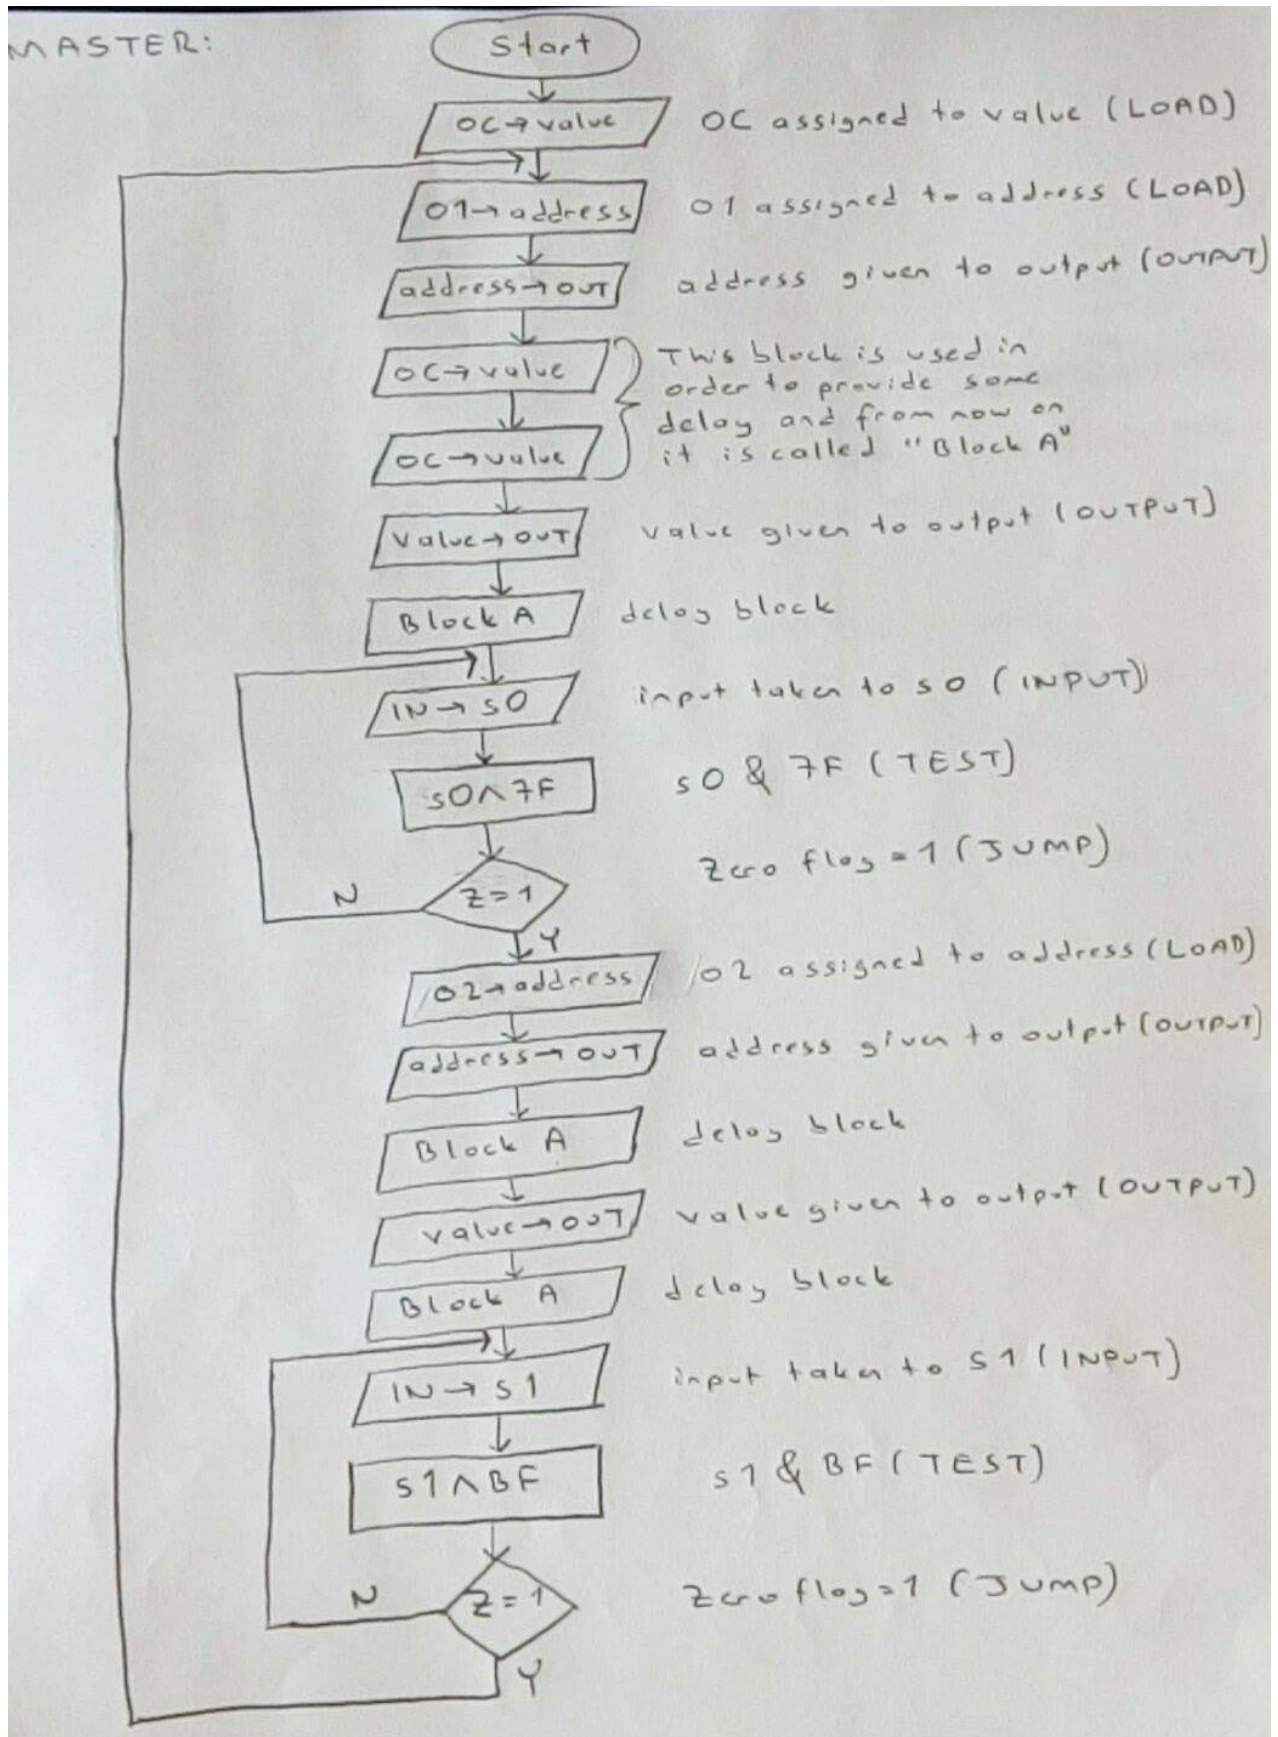 MASTER:
Start
OC→value OC assigned to value (LOAD)
01→address 01 assigned to address (LOAD)
address→OUT address given to output (OUTPUT)
OC→value This block is used in
order to provide some
delay and from now on
OC→value it is called "Block A"
Value→OUT value given to output (OUTPUT)
Block A delay block
IN→s0 input taken to s0 (INPUT)
s0∧7F s0 & 7F (TEST)
Z=1 Zero flag=1 (JUMP)
N
Y
02→address 02 assigned to address (LOAD)
address→OUT address given to output (OUTPUT)
Block A delay block
value→OUT value given to output (OUTPUT)
Block A delay block
IN→s1 input taken to s1 (INPUT)
s1∧BF s1 & BF (TEST)
N
Z=1 Zero flag=1 (JUMP)
Y